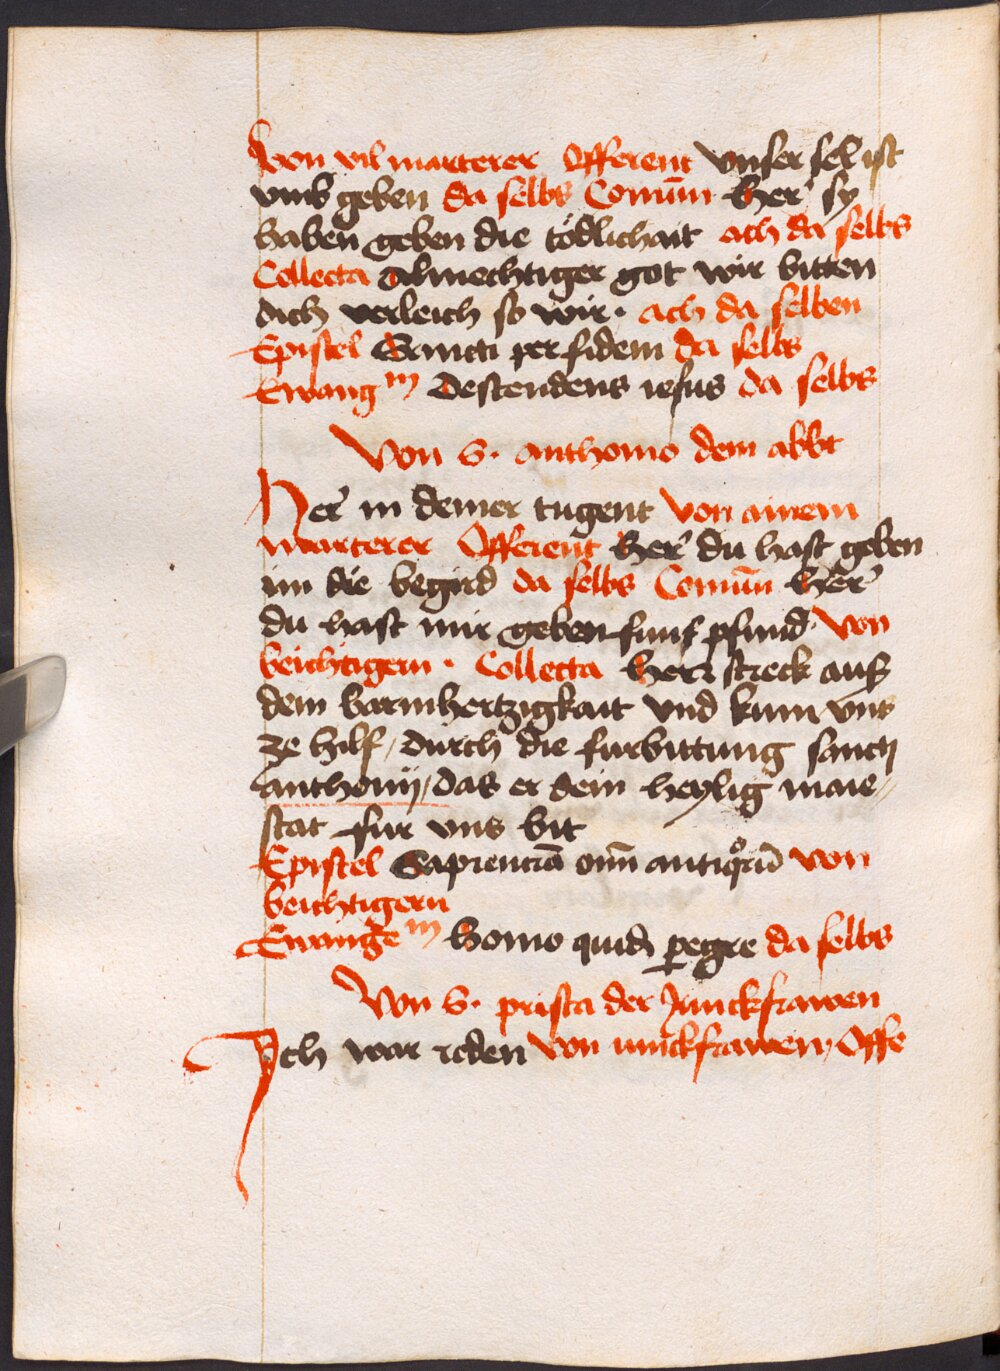 von vil marterer Offerent Vnser sel ist
vmb geben da selbs Comūm her sy
haben geben die tödlichait ach da selbs
Collecta Almechtiger got wir bitten
dich verleich so wir. ach da selben
Epistel Sancti per fidem da selbs
Ewangm Descendens iesus da selbs
Von S. anthonio dem abbt
Her in deiner tugent von ainem
marterer Offerent her du hast geben
im die begird da selbs Comūm her
du hast mir geben funf pfund. von
beichtigern. Collecta herr streck aus
dein barmhertzigkait vnd kum vns
ze hilf / durch die furbittung sancti
anthonij / das er dein heylig maie⸗
stat fur vns bit
Epistel Sapienciā om̄ antiqͦrū von
beichtigern
Ewangem homo quidā pegre da selbs
Von S. prisca der Junckfrawen
Ich war reden von iunckfrawen, Offe